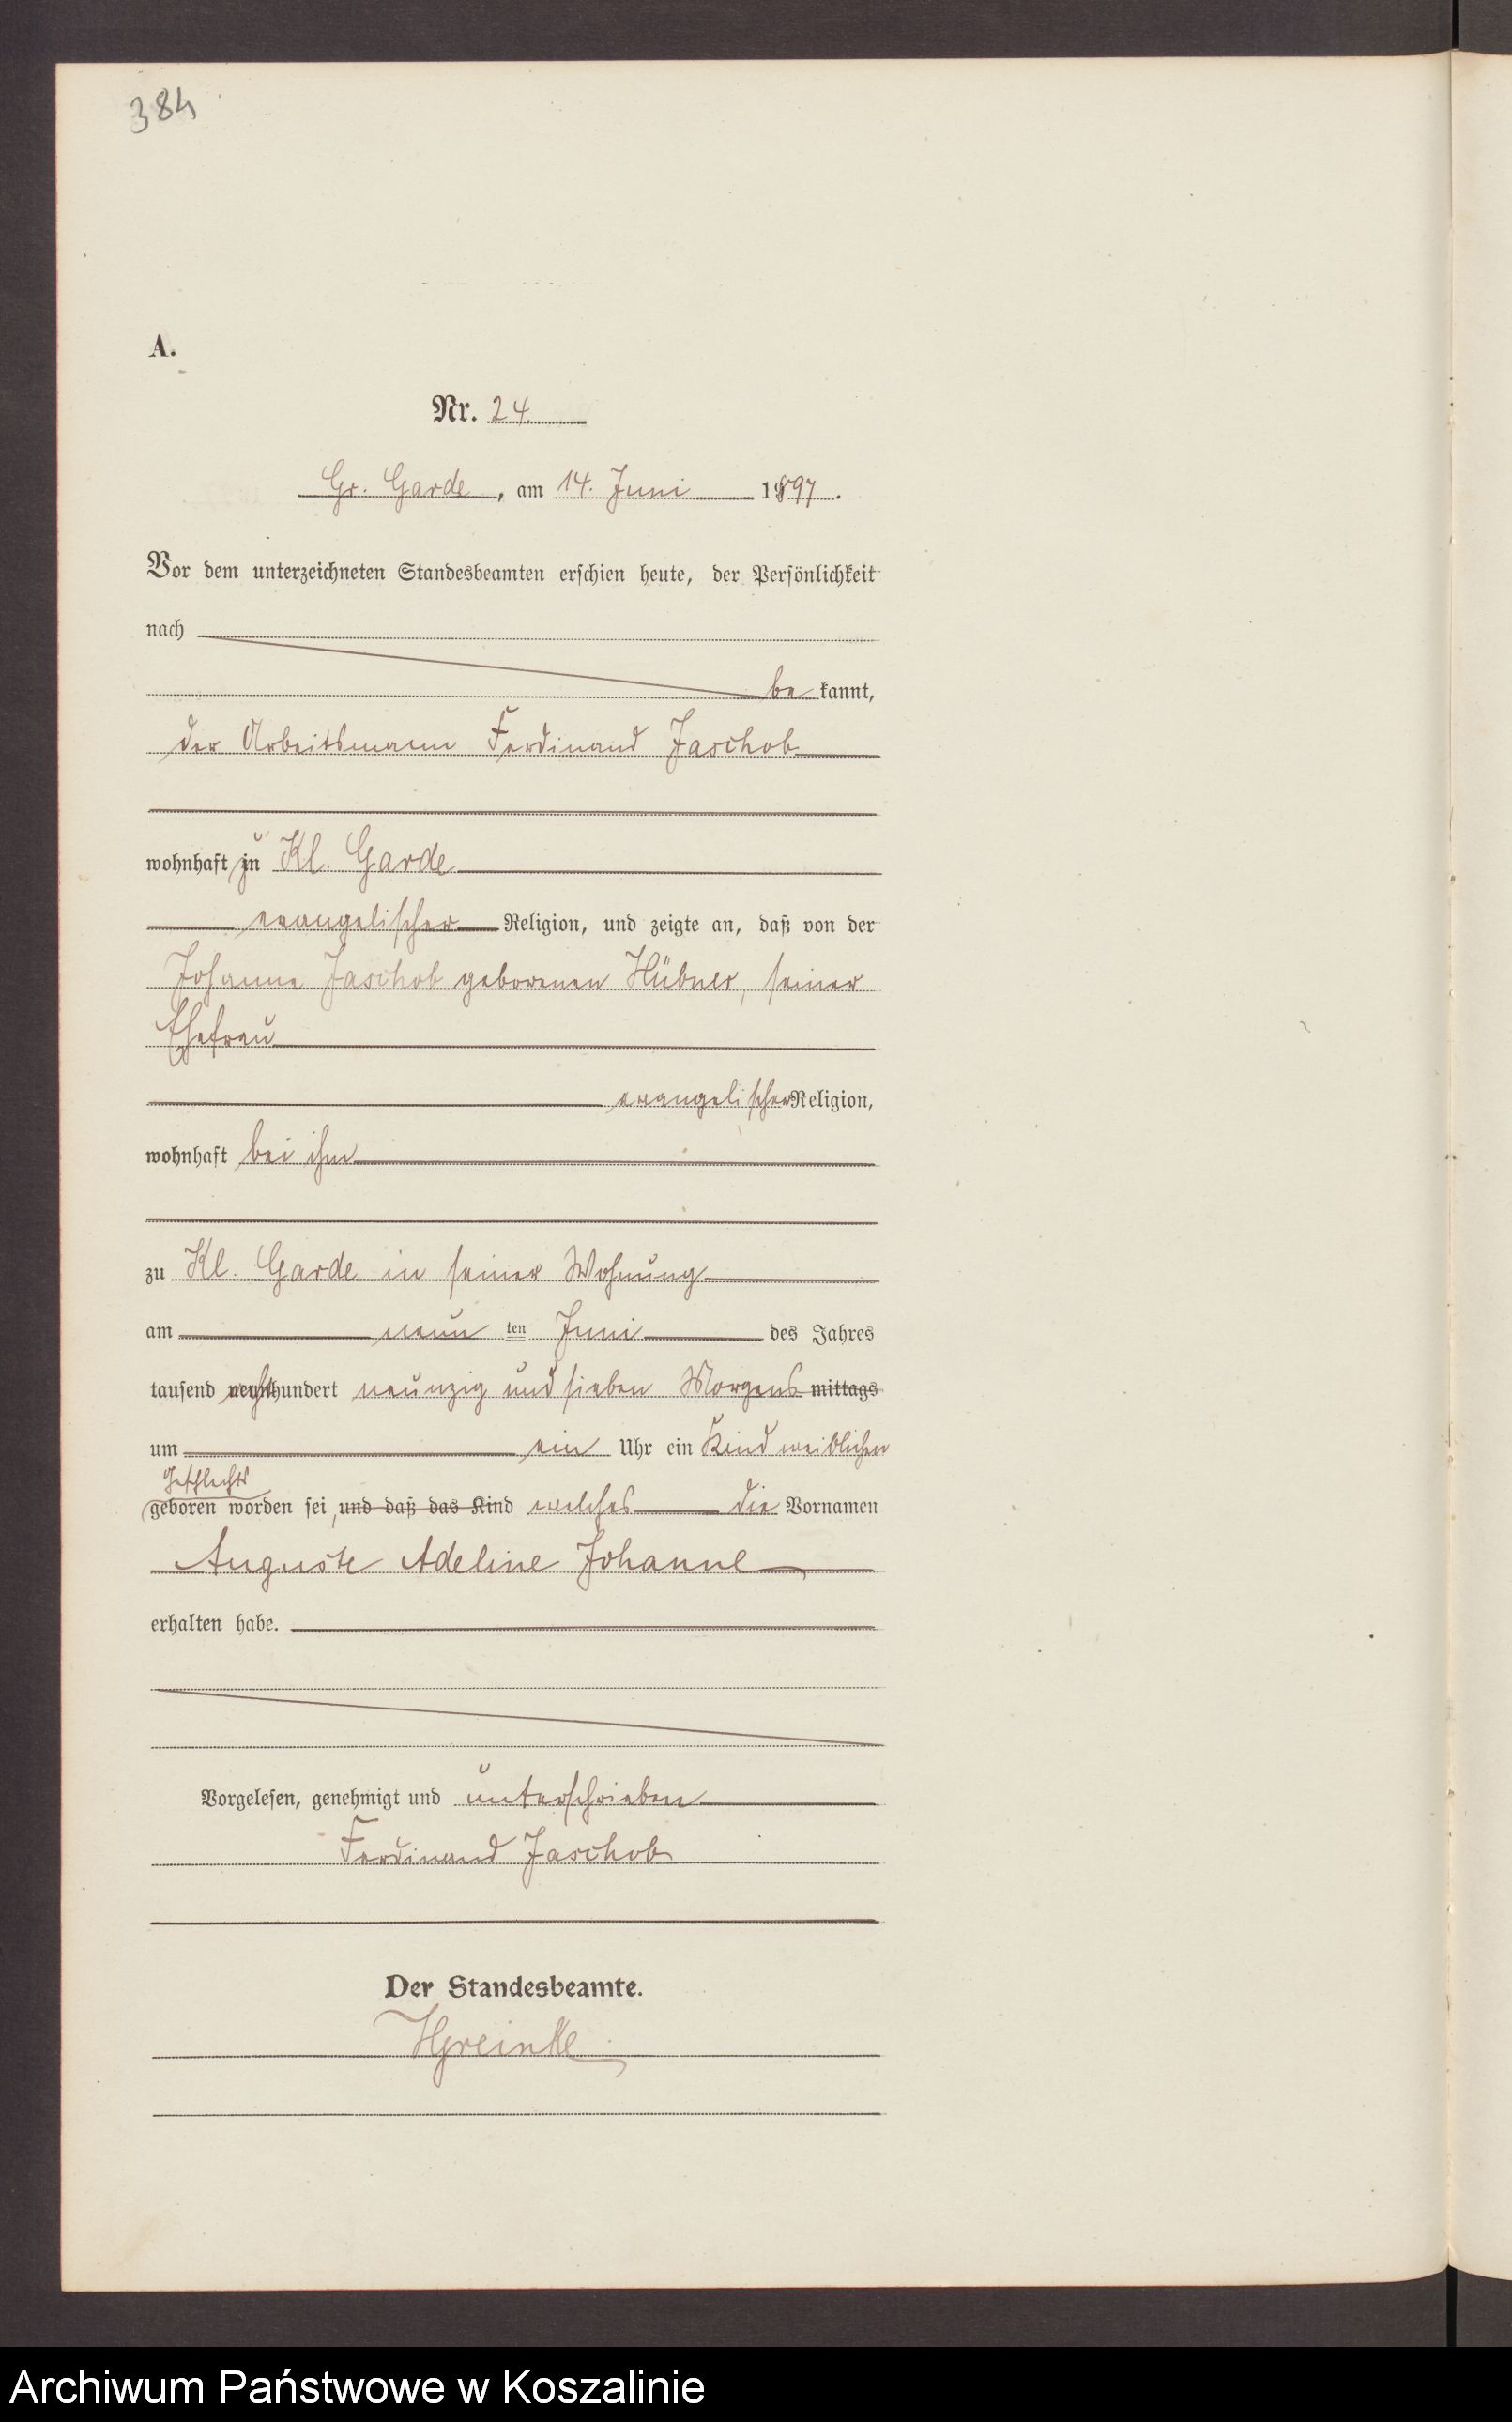 384
A.
Nr. 24
Gr. Garde, am 14. Juni 1897.
Vor dem unterzeichneten Standesbeamten erschien heute, der Persönlichkeit
nach
be kannt,
der Arbeitsmann Ferdinand Jaschob
wohnhaft zu Kl. Garde
evangelischer Religion, und zeigte an, daß von der
Johanne Jaschob geborenen Hübner, seiner
Ehefrau
evangelischer Religion,
wohnhaft bei ihm
zu Kl. Garde in seiner Wohnung
am neun ten Juni des Jahres
tausend achthundert neunzig und sieben Morgens mittags
um ein Uhr ein Kind weiblichen
Geschlechts
geboren worden sei, und daß das Kind welches die Vornamen
Auguste Adeline Johanne
erhalten habe.
Vorgelesen, genehmigt und unterschrieben
Ferdinand Jaschob
Der Standesbeamte.
Archiwum Państwowe w Koszalinie